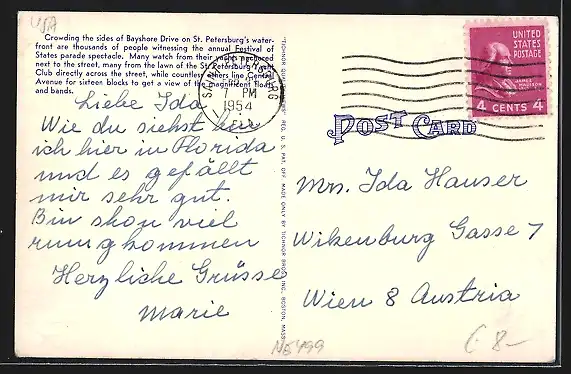 USA
Crowding the sides of Bayshore Drive on St. Petersburg's water-
front are thousands of people witnessing the annual Festival of
States parade spectacle. Many watch from their yachts anchored
next to the street, many from the lawn of the St. Petersburg Yacht
Club directly across the street, while countless others line Central
Avenue for sixteen blocks to get a view of the magnificent floats
and bands.
Liebe Ida
Wie du siehst bin
ich hier in Florida
und es gefällt
mir sehr gut.
Bin shon viel
rumgkommen
Herzliche Grüsse
Marie
7 PM
1954
FLA.
UNITED
STATES
POSTAGE
JAMES
MADISON
4 CENTS 4
POST CARD
Mrs. Ida Hauser
Wikenburg Gasse 7
Wien 8 Austria
No 499
€ 8-